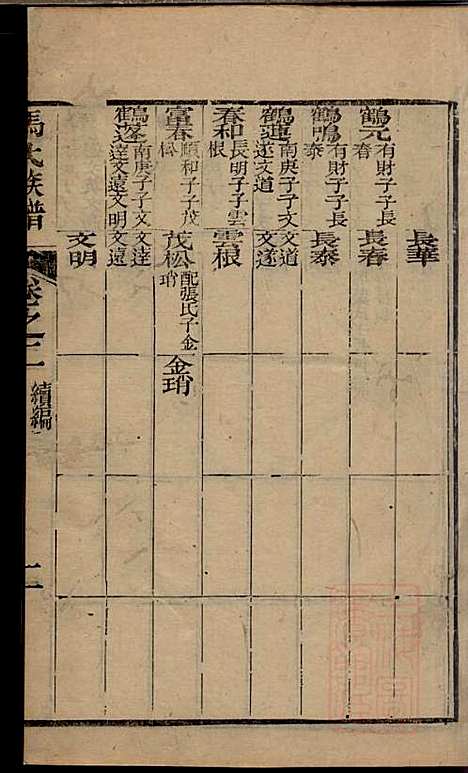 長華
鶴元 有財子子長春
長春
鶴鳴 有財子子長泰
長泰
鶴蓮 南庚子子文道文遂
文道
文遂
春和 長明子子雲根
雲根
富春 頤和子子茂松
茂松 配張氏子金瑣
金瑣
鶴蓬 南庚子子文達文遠文明
文達
文遠
文明
馮氏族譜
卷之二
續編
二